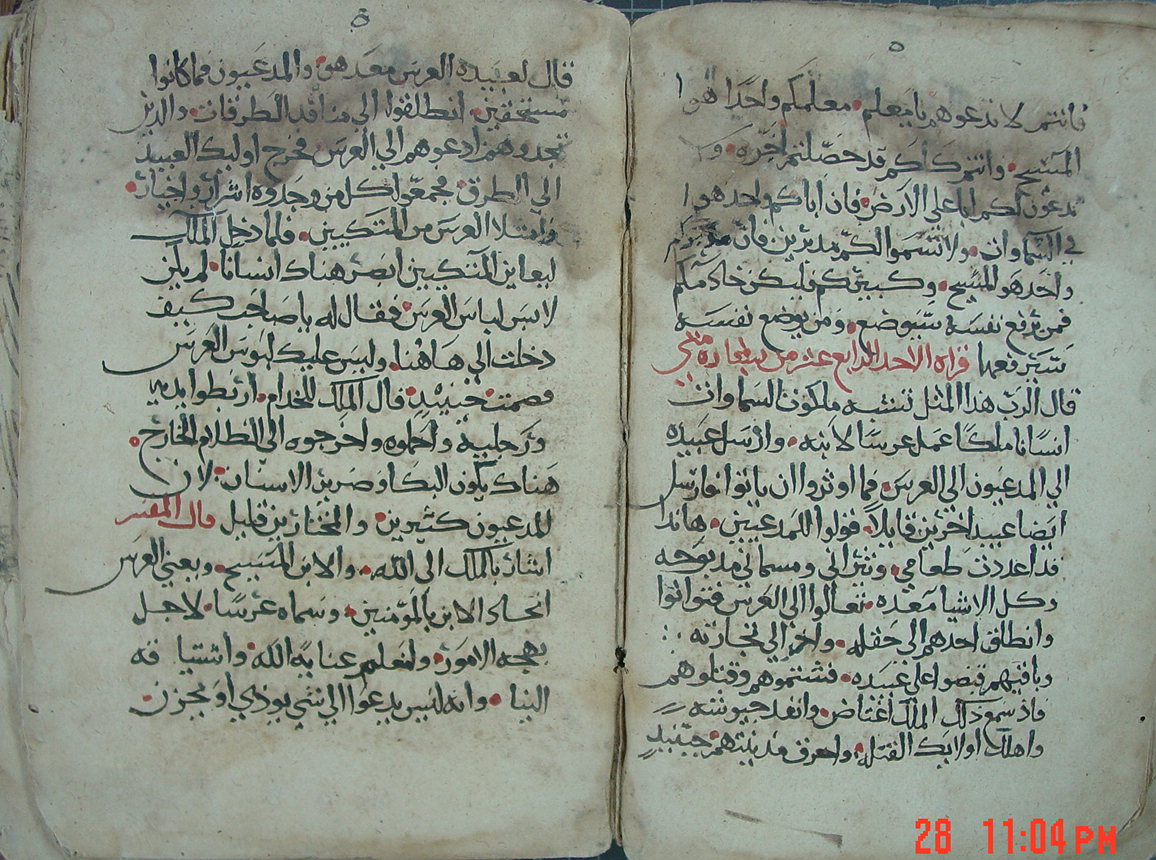 ه
فانتم لا تدعوهم يا معلم معلمكم واحدا هوا
المسيح وانتم كلكم قد حصلتم اخره ولا
تدعون لكم ابا على الارض فان اباكم واحد هوا
في السماوات ولا تسموا لكم مدبرين فان مدبركم
واحد هو المسيح وكبيركم فليكن خادمكم
فمن يرفع نفسه سيوضع ومن يوضع نفسه
سيرفعها قراة الاحد الرابع عشر من بشارة متى
قال الرب هذا المثل تشبه ملكوت السماوات
انسانا ملكا عمل عرسا لابنه وارسل عبيده
الي المدعيون الي العرس فما اوثروا ان ياتوا فارسل
ايضا عبيد اخرين قايلا قولوا للمدعيين هاندا
قد اعددت طعامي وثيراني ومسماتي مدبوحه
وكل الاشيا معده تعالوا الي العرس فتوانوا
وانطلق احدهم الى حقله واخر الي تجارته
وباقيهم قبضوا على عبيده فشتموهم وقتلوهم
فاذ سمع دلك الملك اغتاض وانفد جيوشه
واهلك اولايك القتله واحرق مدينتهم حينيد
ه
قال لعبيده العرس معد هو والمدعيون فما كانوا
مستحقين انطلقوا الي منافد الطرقات والدين
تجدوهم ادعوهم الي العرس فخرج اوليك العبيد
الي الطرق فجمعوا كل من وجدوه اشرار واخيار
وامتلا العرس من المتكيين فلما دخل الملك
ليعاين المتكيين ابصر هناك انسانا لم يكن
لابس لباس العرس فقال له يا صاحب كيف
دخلت الي هاهنا وليس عليك لبوس العرس
فصمت حينيد قال الملك للخدام اربطوا يديه
ورجليه واحملوه واخرجوه الى الظلام الخارج
هناك يكون البكا وصرير الاسنان لان
المدعيون كثيرين والمختارين قليل قال المفسر
اشار بالملك الي الله والابن المسيح ويعني العرس
اتحاد الابن بالمومنين وسماه عرسا لاجل
بهجه الامور ولنعلم عناية الله واشتياقه
الينا وانه ليس يدعوا الي شي يودي او يحزن
28 11:04 PM